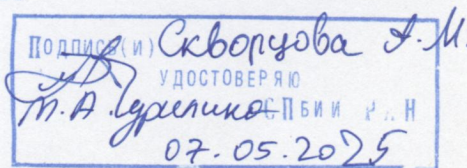 Подпись(и) Скворцова А.М.
УДОСТОВЕРЯЮ
Т.А. СПБИИ РАН
07.05.2025